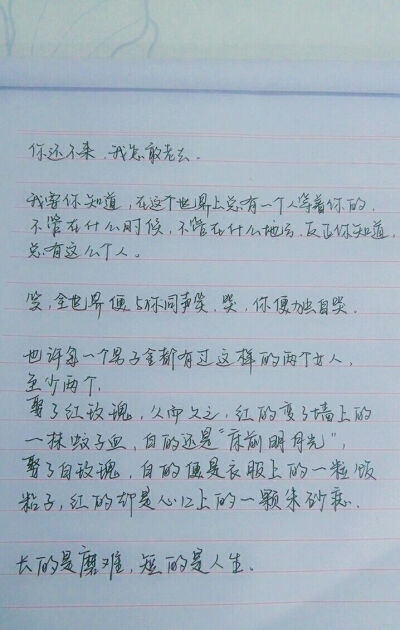 你还不来，我怎敢老去。
我要你知道，在这个世界上总有一个人等着你的，
不管在什么时候，不管在什么地方，反正你知道，
总有这么个人。
笑，全世界便与你同声笑，哭，你便独自哭。
也许每一个男子全都有过这样的两个女人，
至少两个，
娶了红玫瑰，久而久之，红的变了墙上的
一抹蚊子血，白的还是“床前明月光”，
娶了白玫瑰，白的便是衣服上的一粒饭
粘子，红的却是心口上的一颗朱砂痣。
长的是磨难，短的是人生。